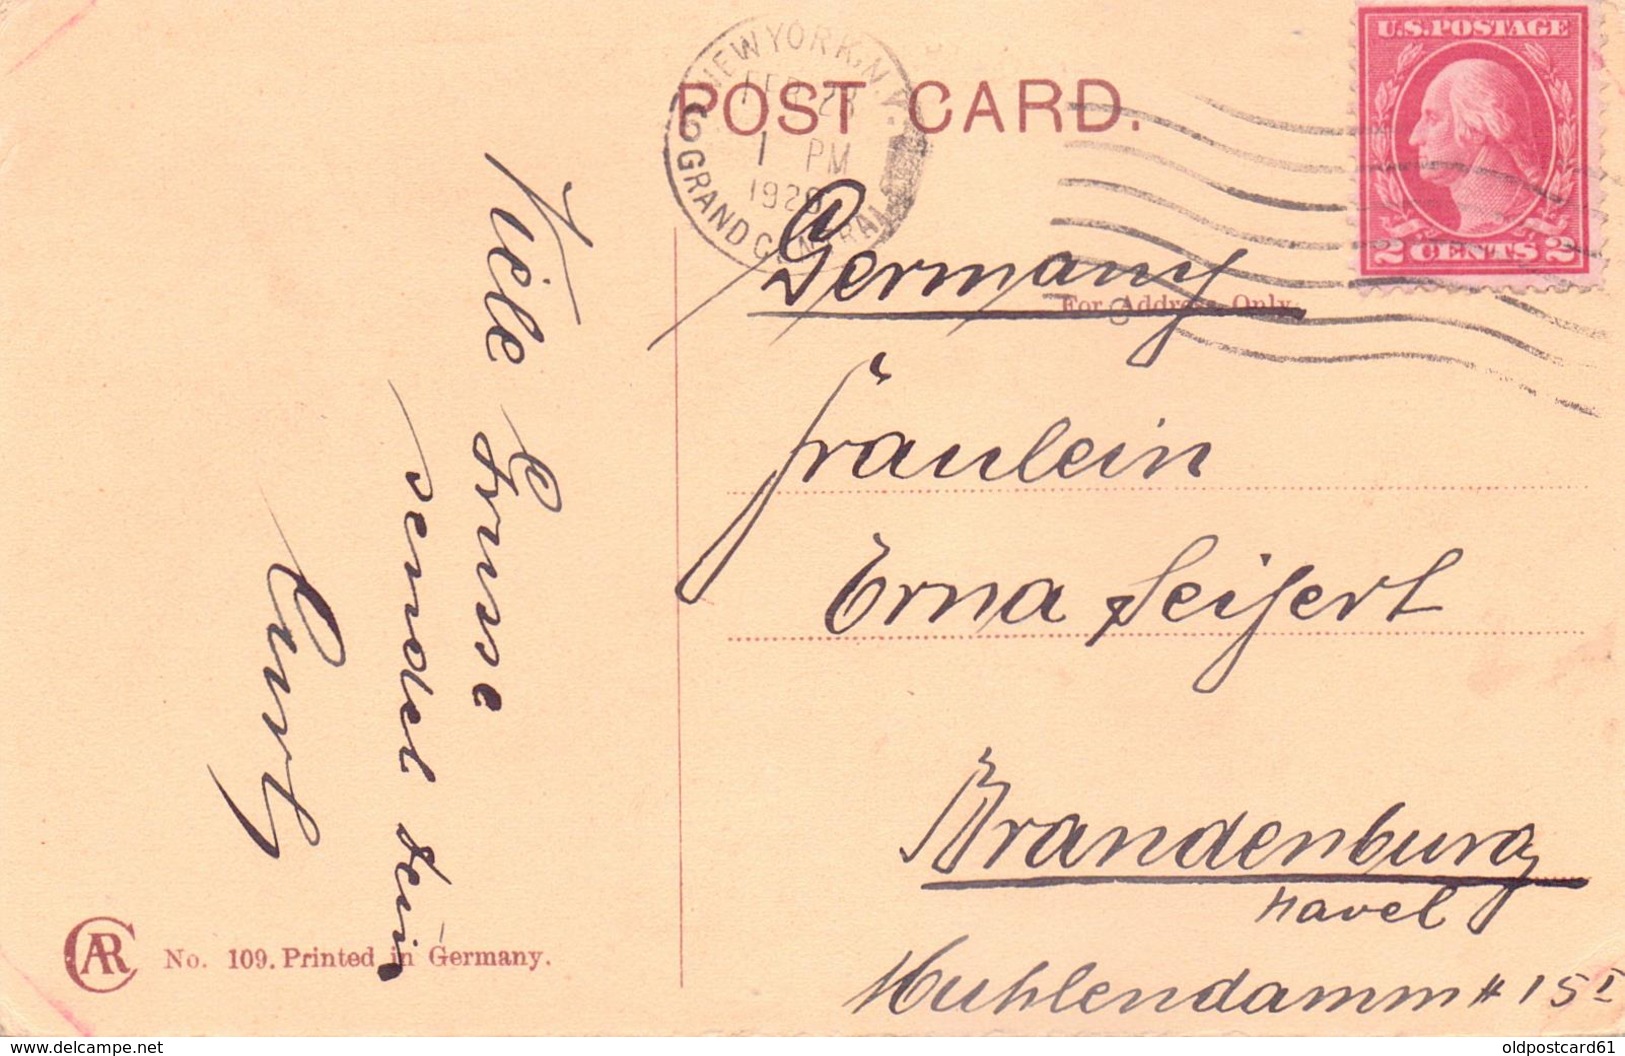 NEW YORK, N.Y.
FEB 28
1 PM
GRAND CENTRAL
POST CARD.
U.S. POSTAGE
2 CENTS 2
Germany
For Address Only.
Fräulein
Erna Seifert
Brandenburg
Havel
Muhlendamm # 15 I
Viele Grüsse
sendet dein
Curt
CAR
No. 109. Printed in Germany.
www.delcampe.net
oldpostcard61